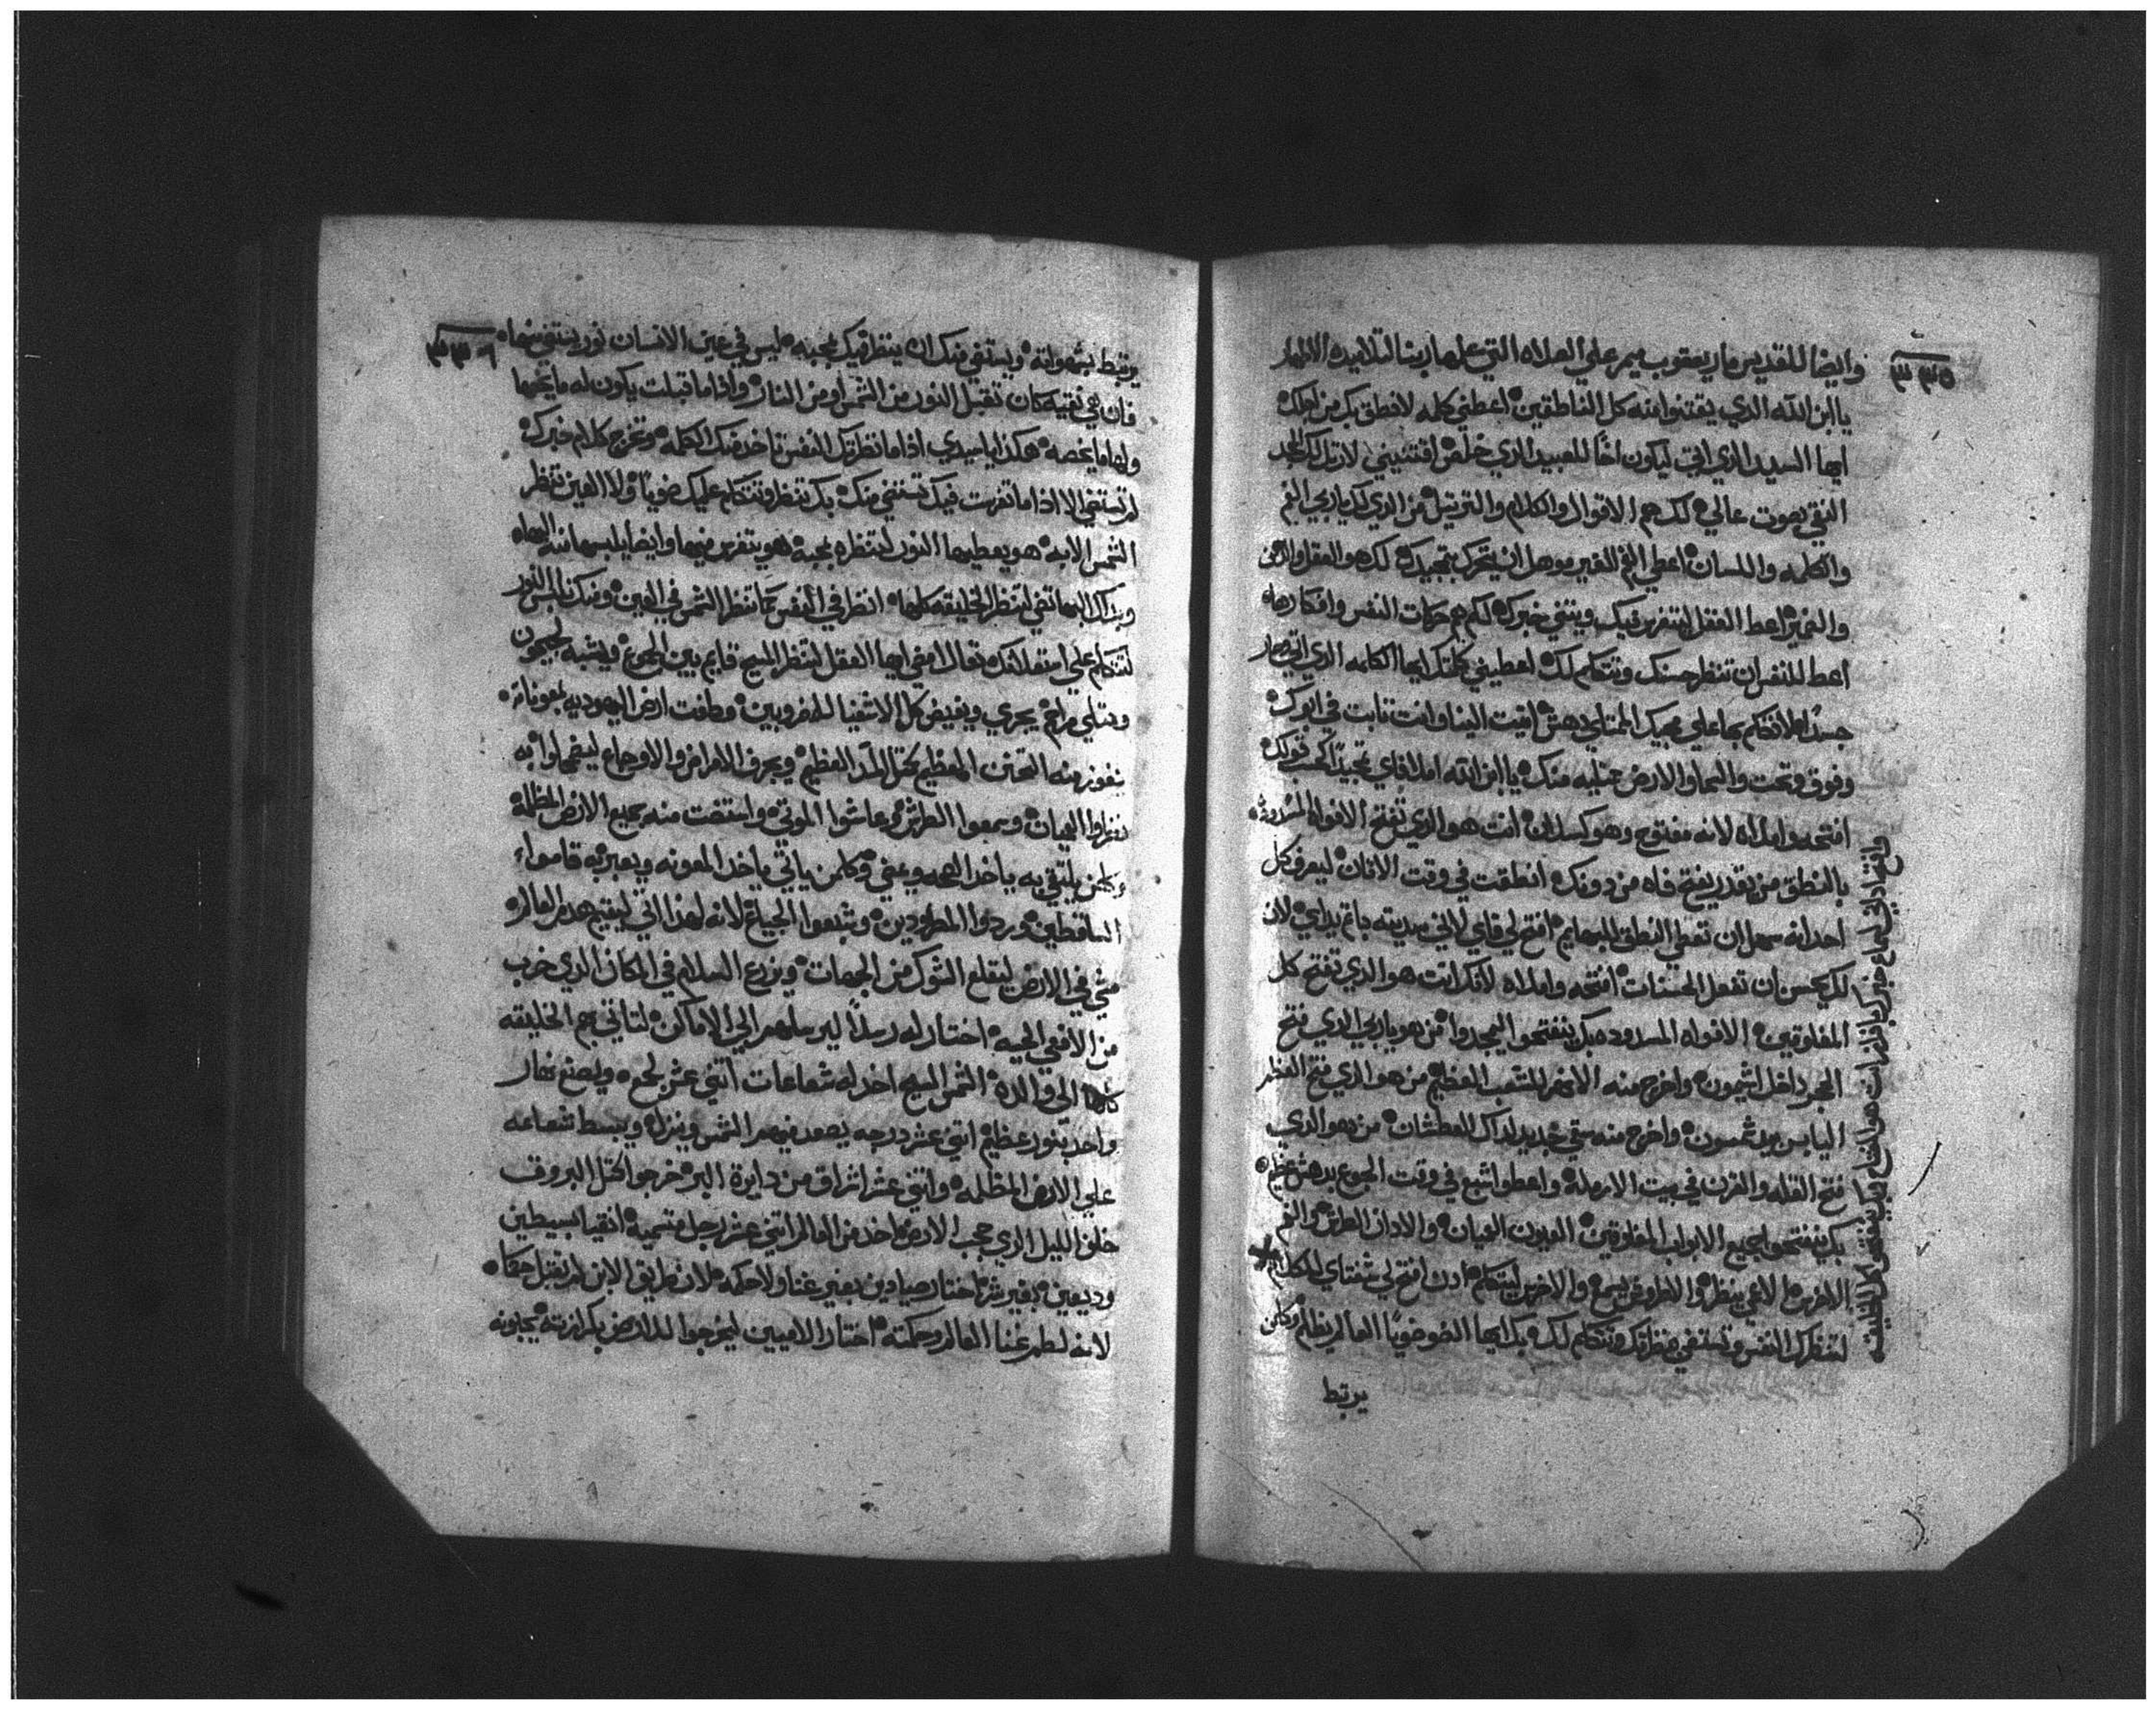 ٣٣٥
وايضا للقديس مار يعقوب ميمر علي الصلاه التي علمها ربنا لتلاميده الاطهار
يا ابن الله الدي يقتنوا منه كل الناطقين اعطني كلمه لانطق بك من اجلك
ايها السيد الدي اتي ليكون اخًا للعبيد الدي خلص اقتنيني لارتل لك المجد
النقي بصوت عالي لك هم الاقوال والكلام والترتيل من الدي لك يا ربي الفم
والكلمه واللسان اعطي الفم الفقير موهل ان يتحرك بتمجيدك لك هو العقل
والتميز اعط العقل ليتفرس فيك ويقتني خبرك لك هم حركات النفس وافكارها
اعط للنفس ان تنظر حسنك وتتكلم لك اعطيني كلمتك ايها الكلمه الدي اتي وصار
جسدًا لاتكلم بها علي مجيك الممتلي دهش اتيت الينا وانت تابت في ابوك
وفوق وتحت والسما والارض ممتليه منك يا ابن الله املا فاي تمجيدًا
افتحه واملاه لانه مفتوح وهو كسلان انت هو الدي تفتح الافواه المسدوده
بالنطق من يقدر يفتح فاه من دونك انطقت في وقت الاتان ليعرف كل
احد انه سهل ان تعطي النطق للبهايم افتح لي فاي لاني بهيمته لان
لك يحسن ان تفعل الحسنات افتحه واملاه لانك انت هو الدي تفتح كل
المغلوقين الافواه المسدوده بك ينفتحوا ليمجدوا من هو يا ربي الدي فتح
الحجر داخل اشيمون واخرج منه الانهر للشعب العظيم من هو الدي فتح العظم
اليابس بيد شمسون واخرج منه سقي جديد لداك العطشان من هو الدي
فتح القله والقرن في بيت الارمله واعطوا شبع في وقت الجوع بدهش عظيم
بك ينفتحوا جميع الابواب المغلوقين العيون العميان والادان الطرش والفم
الاخرس الاعمي ينظر والاطروش يسمع والاخرس ليتكلم ادن افتح لي شفتاي للكلام
لتنظرك النفس وتستضي منظرتك وتتكلم لك بك ايها الضو ضويًا العالم يظلم وكلمن
يرتبط
وافتح اداني لسماع خبرك يا ربي
٣٣٦
يرتبط بشهواته ويستضي منك ان ينظر فيك بمحبه ليس في عين الانسان نور يستضي منها
فان هي نقيه كان تقبل النور من الشمس او من النار وادا ما قبلت يكون له ما يخصها
ولها ما يخصه هكدا يا سيدي ادا ما نظرتك النفس تاخد منك الكلمه وتخرج كلام خبرك
لم تستضي الا ادا ما تفرست فيك تستضي منك بك تنظر وتتكلم عليك ضويًا ولا العين تنظر
الشمس الا به هو يعطيها النور لتنظره بمحبه هو يتفرس فيها وايضا يلبسها منه البهاء
وبداك البها تضي لتنظر الخليقه كلها انظر في النفس كما تنظر الشمس في العين ومنك تلبس النور
لتتكلم علي استعلانك تعال امضي ايها العقل لتنظر المسيح قايم بين الجموع
وممتلي مراحم يجري ويفيض كل الاشفيا للمضروبين وطافت ارض اليهوديه بمعوناته
تفور منه التحنن العظيم كمتل الما العظيم ويجرف الامراض والاوجاع ليضمحلوا به
نظروا العميان وسمعوا الطرش وعاشوا الموتي واستضت منه جميع الارض المظلمه
وكلمن يلتقي به ياخد الصحه ويمضي وكلمن ياتي ياخد المعونه ويعبر به قاموا
الساقطين وردوا المطرودين وشبعوا الجياع لانه لهدا اتي ليقيم هدم العالم
مشي في الارض ليقلع الشوك من الجهات ويزرع السلام في المكان الدي خرب
من الافعي الحيه اختار له رسلًا ليرسلهم الي الاماكن لتاتي بهم الخليقه
كلها الي والده الشمس المسيح اخد له شعاعات اتني عشر لجمع وليصنع نهار
واحد بنور عظيم اتني عشر درجه يصعد فيهم الشمس وينزل ويبسط شعاعه
علي الارض المظلمه واتني عشر اشراق من دايرة البر خرجوا كمتل البروق
خلف الليل الدي حجب الارض اخد من العالم اتني عشر رجل متميه انقيا بسيطين
وديعين بغير شر اختار صيادين بغير غنا ولا حكمه لان طريق الابن لم تقبل حكما
لانه لطم غنا العالم وحكمته اختار الاميين ليخرجوا للارض بكرازته يجلونه